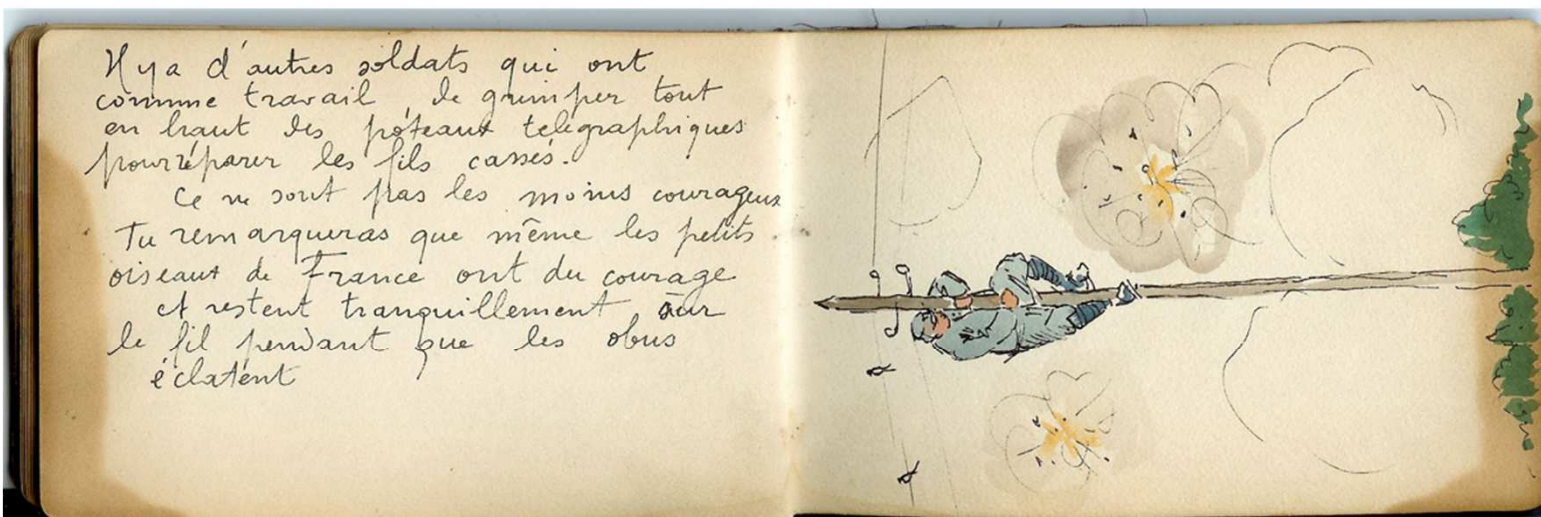 Il y a d'autres soldats qui ont
comme travail, de grimper tout
en haut des pôteaux telegraphiques
pour réparer les fils cassés.
Ce ne sont pas les moins courageux
Tu remarqueras que même les petits
oiseaux de France ont du courage
et restent tranquillement sur
le fil pendant que les obus
éclatent